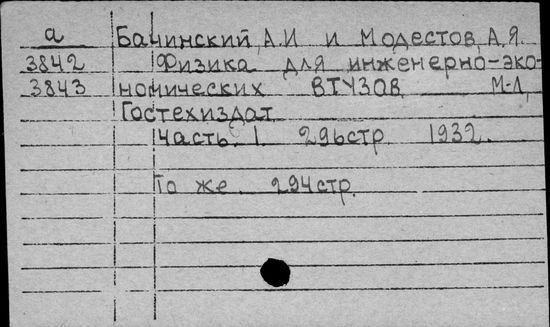 а Бачинский, А.И и Модестов, А.Я.
3842 Физика для инженерно-эко-
3843 номических ВТУЗОВ М-Л,
Гостехиздат
часть 1 296стр 1932.
То же 294стр.